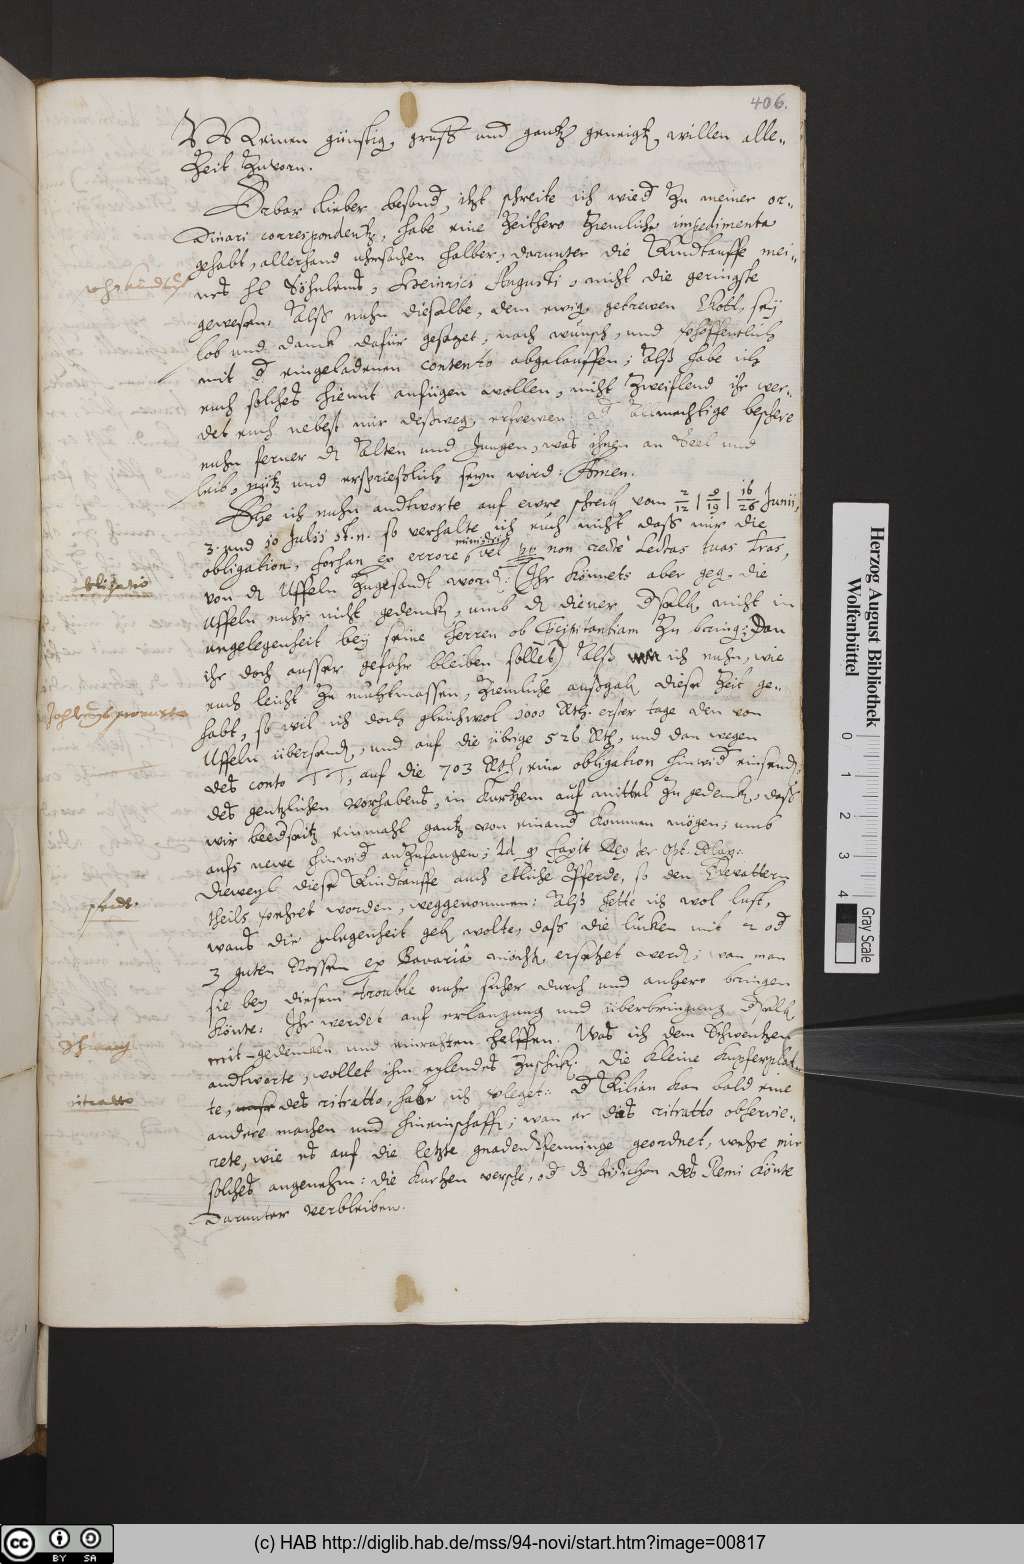 406.
Meinen günstig. gruß und gantz geneigt willen alle-
Zeit Zuvorn.
Erbar Lieber besond, itzt schreite ich wied Zu meiner or-
dinari correspondentz, habe eine Zeithero Ziemliche impedimenta
gehabt, allerhand uhrsachen halber, darunter die Kindtauffe mei-
nes Söhnleins, Heinrici Augusti, nicht die geringste
gewesen. Alß nuhn dieselbe, dem ewig. getrewen Gott, sey
lob und danck dafür gesaget, nach wunsch, und
mit d eingeladenen contento abgelauffen; Alß habe ich
euch solches hiemit anfügen wollen, nicht Zweiflend ihr wer-
det euch nebest mir deßweg. erfrewen: d Allmechtige beschere
nuhn ferner d Alten und Jungen, was ihnen an Seel und
leib, nütz und ersprießlich seyn wird: Amen.
Ehe ich nuhn andtworte auf ewre schreib. vom 2/12 | 9/19 | 16/26 Junii,
3. und 10 Julii st. n. so verhalte ich euch nicht daß mir die
obligation, forsan ex errore vel non recte lectas tuas tras,
von d Uffeln Zugesandt word: (Ihr könnets aber geg. die
Uffeln nuhr nicht gedenck, umb d diener dhalb nicht in
ungelegenheit bey seine herren ob Zu bring: Dan
ihr doch ausser gefahr bleiben sollet) Alß ich nuhn, wie
euch leicht Zu muthmassen, Ziemliche außgab diese Zeit ge-
habt, so wil ich doch gleichwol 1000 Rth. erster tage den von
Uffeln übersend, und auf die übrige 526 Rth, und dan wegen
des conto auf die 703 Rth, eine obligation hinwid einsend,
des gentzlichen vorhabens, in kurtzem auf mittel Zu gedenck, daß
wir beedseitz einmahl gantz von einand kommen mögen; umb
aufs newe hinwid anZufangen;
Dieweyl diese Kindtauffe auch etliche Pferde, so den Gevattern
theils verehret worden, weggenommen: Alß hette ich wol lust,
wans die gelegenheit geb wolte, daß die lücken mit 2 od
3 guten Rossen ex Bavariâ möcht ersetzet werd; wan man
sie bey diesem trouble nuhr sicher durch und anhero bringen
könte: Ihr werdet auf erlangung und überbringung dhalb
mit gedencken und einrahten helffen. Was ich dem Schwencken
andtworte, wollet ihm eylendes Zuschick. Die kleine kupferplat-
te, des ritratto, habe ich d Kilian kan bald eine
andere machen und hineinschaff; wan er das ritratto observie-
rete, wie es auf die letzte gnaden Pfenninge geordnet, wehre mir
solches angenehm: die d des Remi könte
darunter verbleiben.
obligatio
Pferde
ritratto
Herzog August Bibliothek
Wolfenbüttel
0 1 2 3 4
Gray Scale
cc BY SA
(c) HAB http://diglib.hab.de/mss/94-novi/start.htm?image=00817